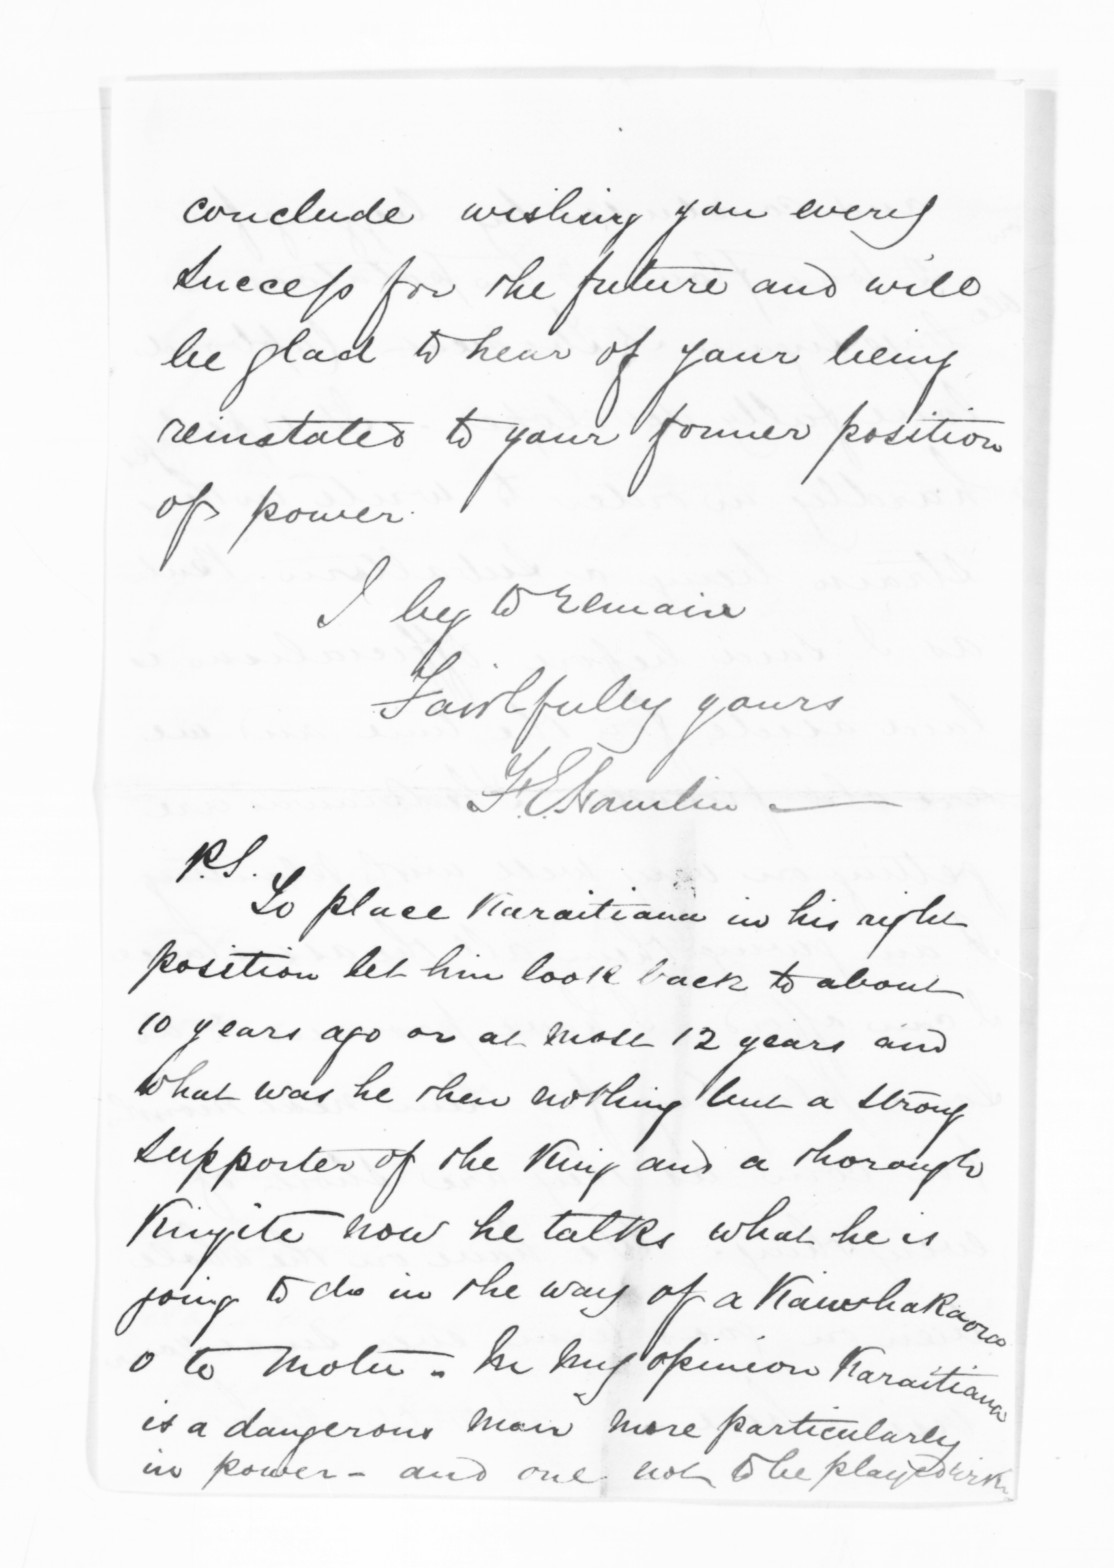 conclude wishing you every
success for the future and will
be glad to hear of your being
reinstated to your former position
of power.
I beg to remain
Faithfully yours
F. E. Hamlin
P.S.
To place Karaitiana in his right
position let him look back to about
10 years ago or at most 12 years and
what was he then nothing but a strong
supporter of the King and a thorough
Kingite now he talks what he is
going to do in the way of a Kaiwhakaora
o te motu - In my opinion Karaitiana
is a dangerous man more particularly
in power - and one not to be played with